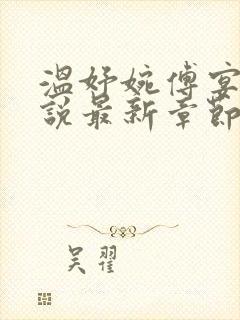 溫妤婉傅宴
說最新章節
吴翟